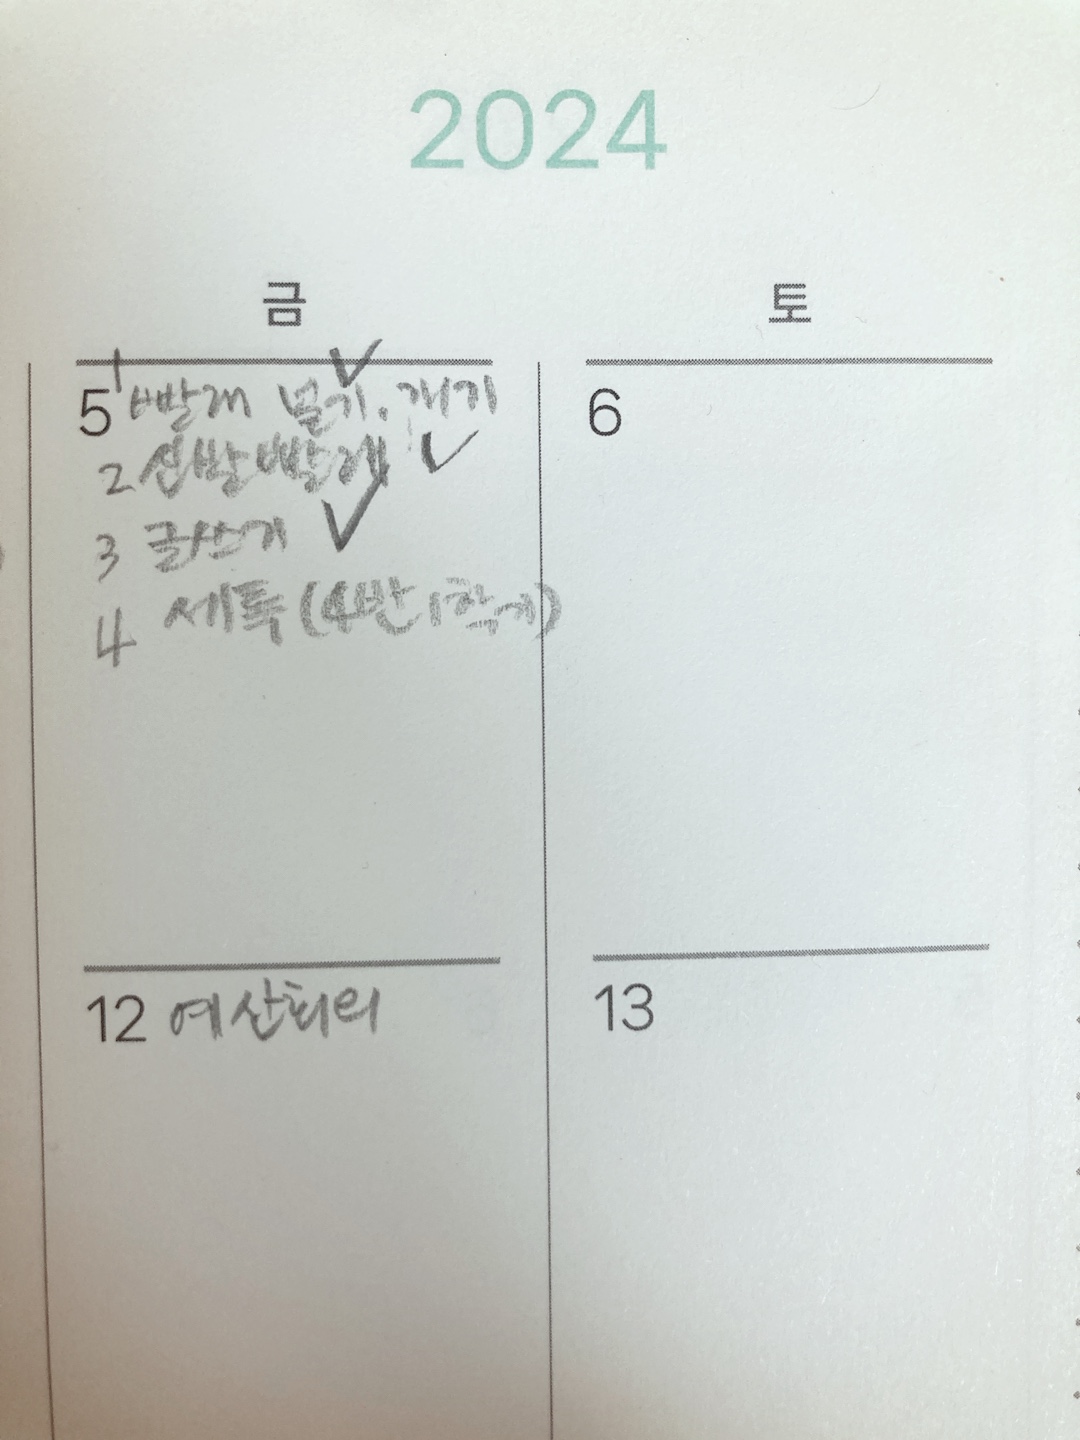 2024
금 토
5 1 빨래 널기, 개기 ✓
2 신발빨래 ✓
3 글쓰기 ✓
4 세특 (4반 1학기)
6
12 예산회의
13